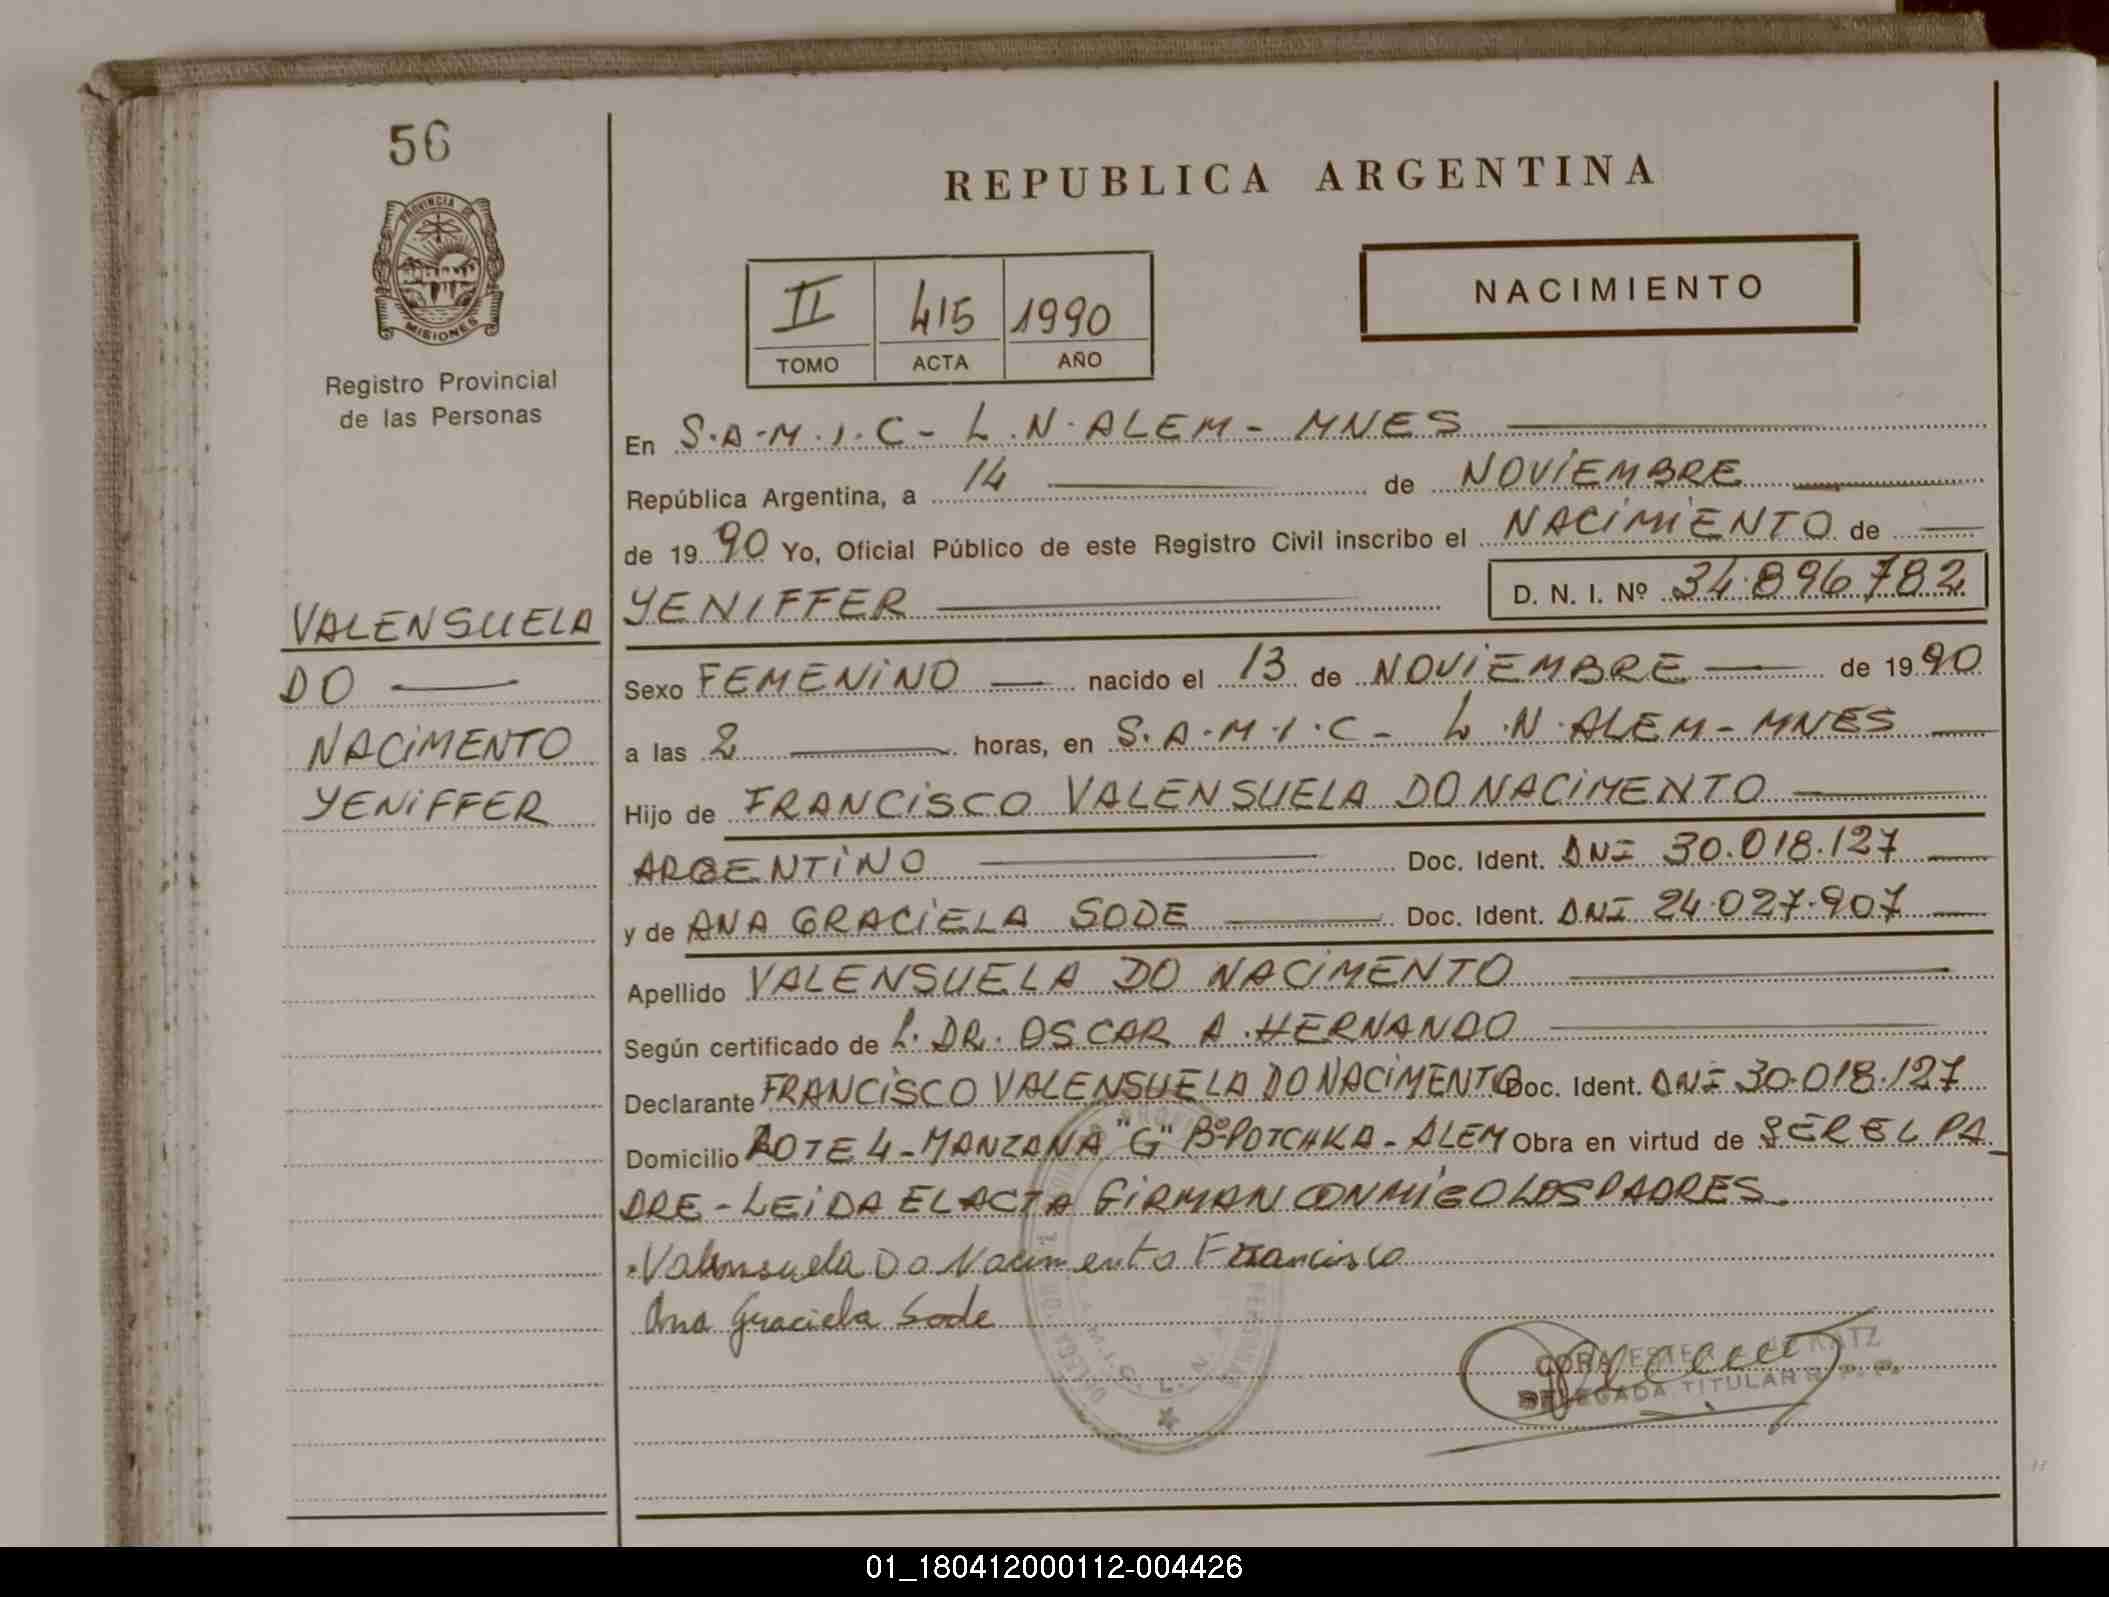 56
PROVINCIA DE
MISIONES
Registro Provincial
de las Personas
VALENSUELA
DO
NACIMENTO
YENIFFER
REPUBLICA ARGENTINA
II 415 1990
TOMO ACTA AÑO
NACIMIENTO
En S.A.M.I.C - L.N. ALEM - MNES
República Argentina, a 14 de NOVIEMBRE
de 1990 Yo, Oficial Público de este Registro Civil inscribo el NACIMIENTO de
YENIFFER D. N. I. Nº 34.896.782
Sexo FEMENINO nacido el 13 de NOVIEMBRE de 1990
a las 2 horas, en S.A.M.I.C - L.N. ALEM - MNES
Hijo de FRANCISCO VALENSUELA DO NACIMENTO
ARGENTINO Doc. Ident. DNI 30.018.127
y de ANA GRACIELA SODE Doc. Ident. DNI 24.027.907
Apellido VALENSUELA DO NACIMENTO
Según certificado de L. DR. OSCAR A. HERNANDO
Declarante FRANCISCO VALENSUELA DO NACIMENTO Doc. Ident. DNI 30.018.127
Domicilio LOTE 4 - MANZANA "G" Bº POTCHKA - ALEM Obra en virtud de SER EL PA
DRE - LEIDA EL ACTA FIRMAN CONMIGO LOS PADRES
Valensuela Do Nacimento Francisco
Ana Graciela Sode
CORA ESTER
DELEGADA TITULAR
01_180412000112-004426